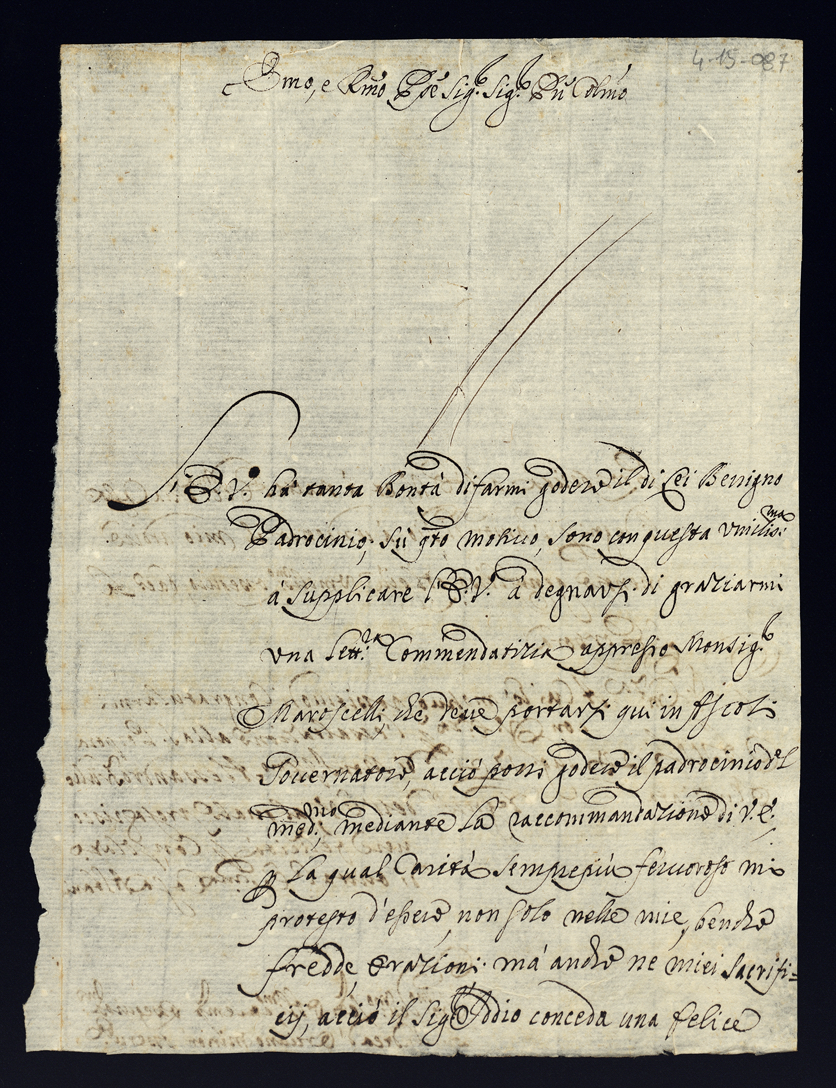 4-15-087
Emo, e Rmo Ppe Sig.r Sig.r Pñ Colmo
L'E. V. há tanta Bontá di farmi godere il di Lei Benigno
Padrocinio; Sú gto motiuo, sono con questa vmiliss:ma
á supplicare l'E. V. á degnarsi di graziarmi
vna lett:ra Commendatizia appresso Monsig.r
Maroscelli che deue portarsi qui in Ascoli
Gouernatore, acció possi godere il padrocinio del
med:mo, mediante la raccommandazione di V. E.,
p la qual Caritá sempre piú feruoroso mi
protesto d'essere, non solo nelle mie, benche
fredde, orazioni má anche ne miei sacrifi=
cij, acció il Sig.r Iddio conceda una felice